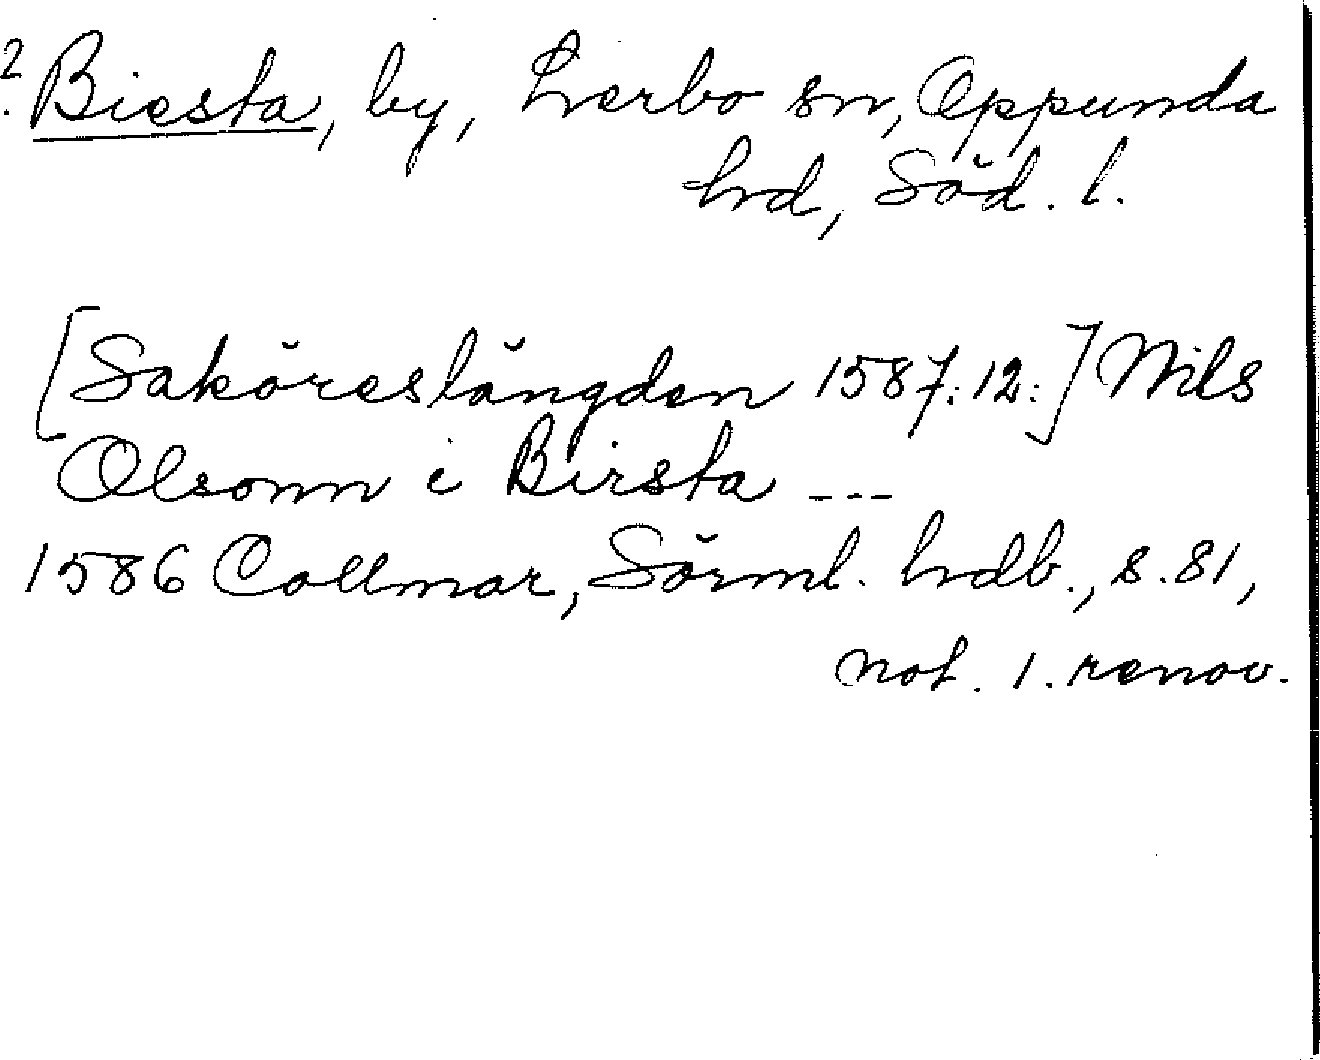 ? Biesta, by, Lerbo sn, Oppunda
hd, Söd. l.
[Saköreslängden 1587:12:] Nils
Olsonn i Birsta ---
1586 Collmar, Sörml. hdb., s. 81,
not. 1. renov.